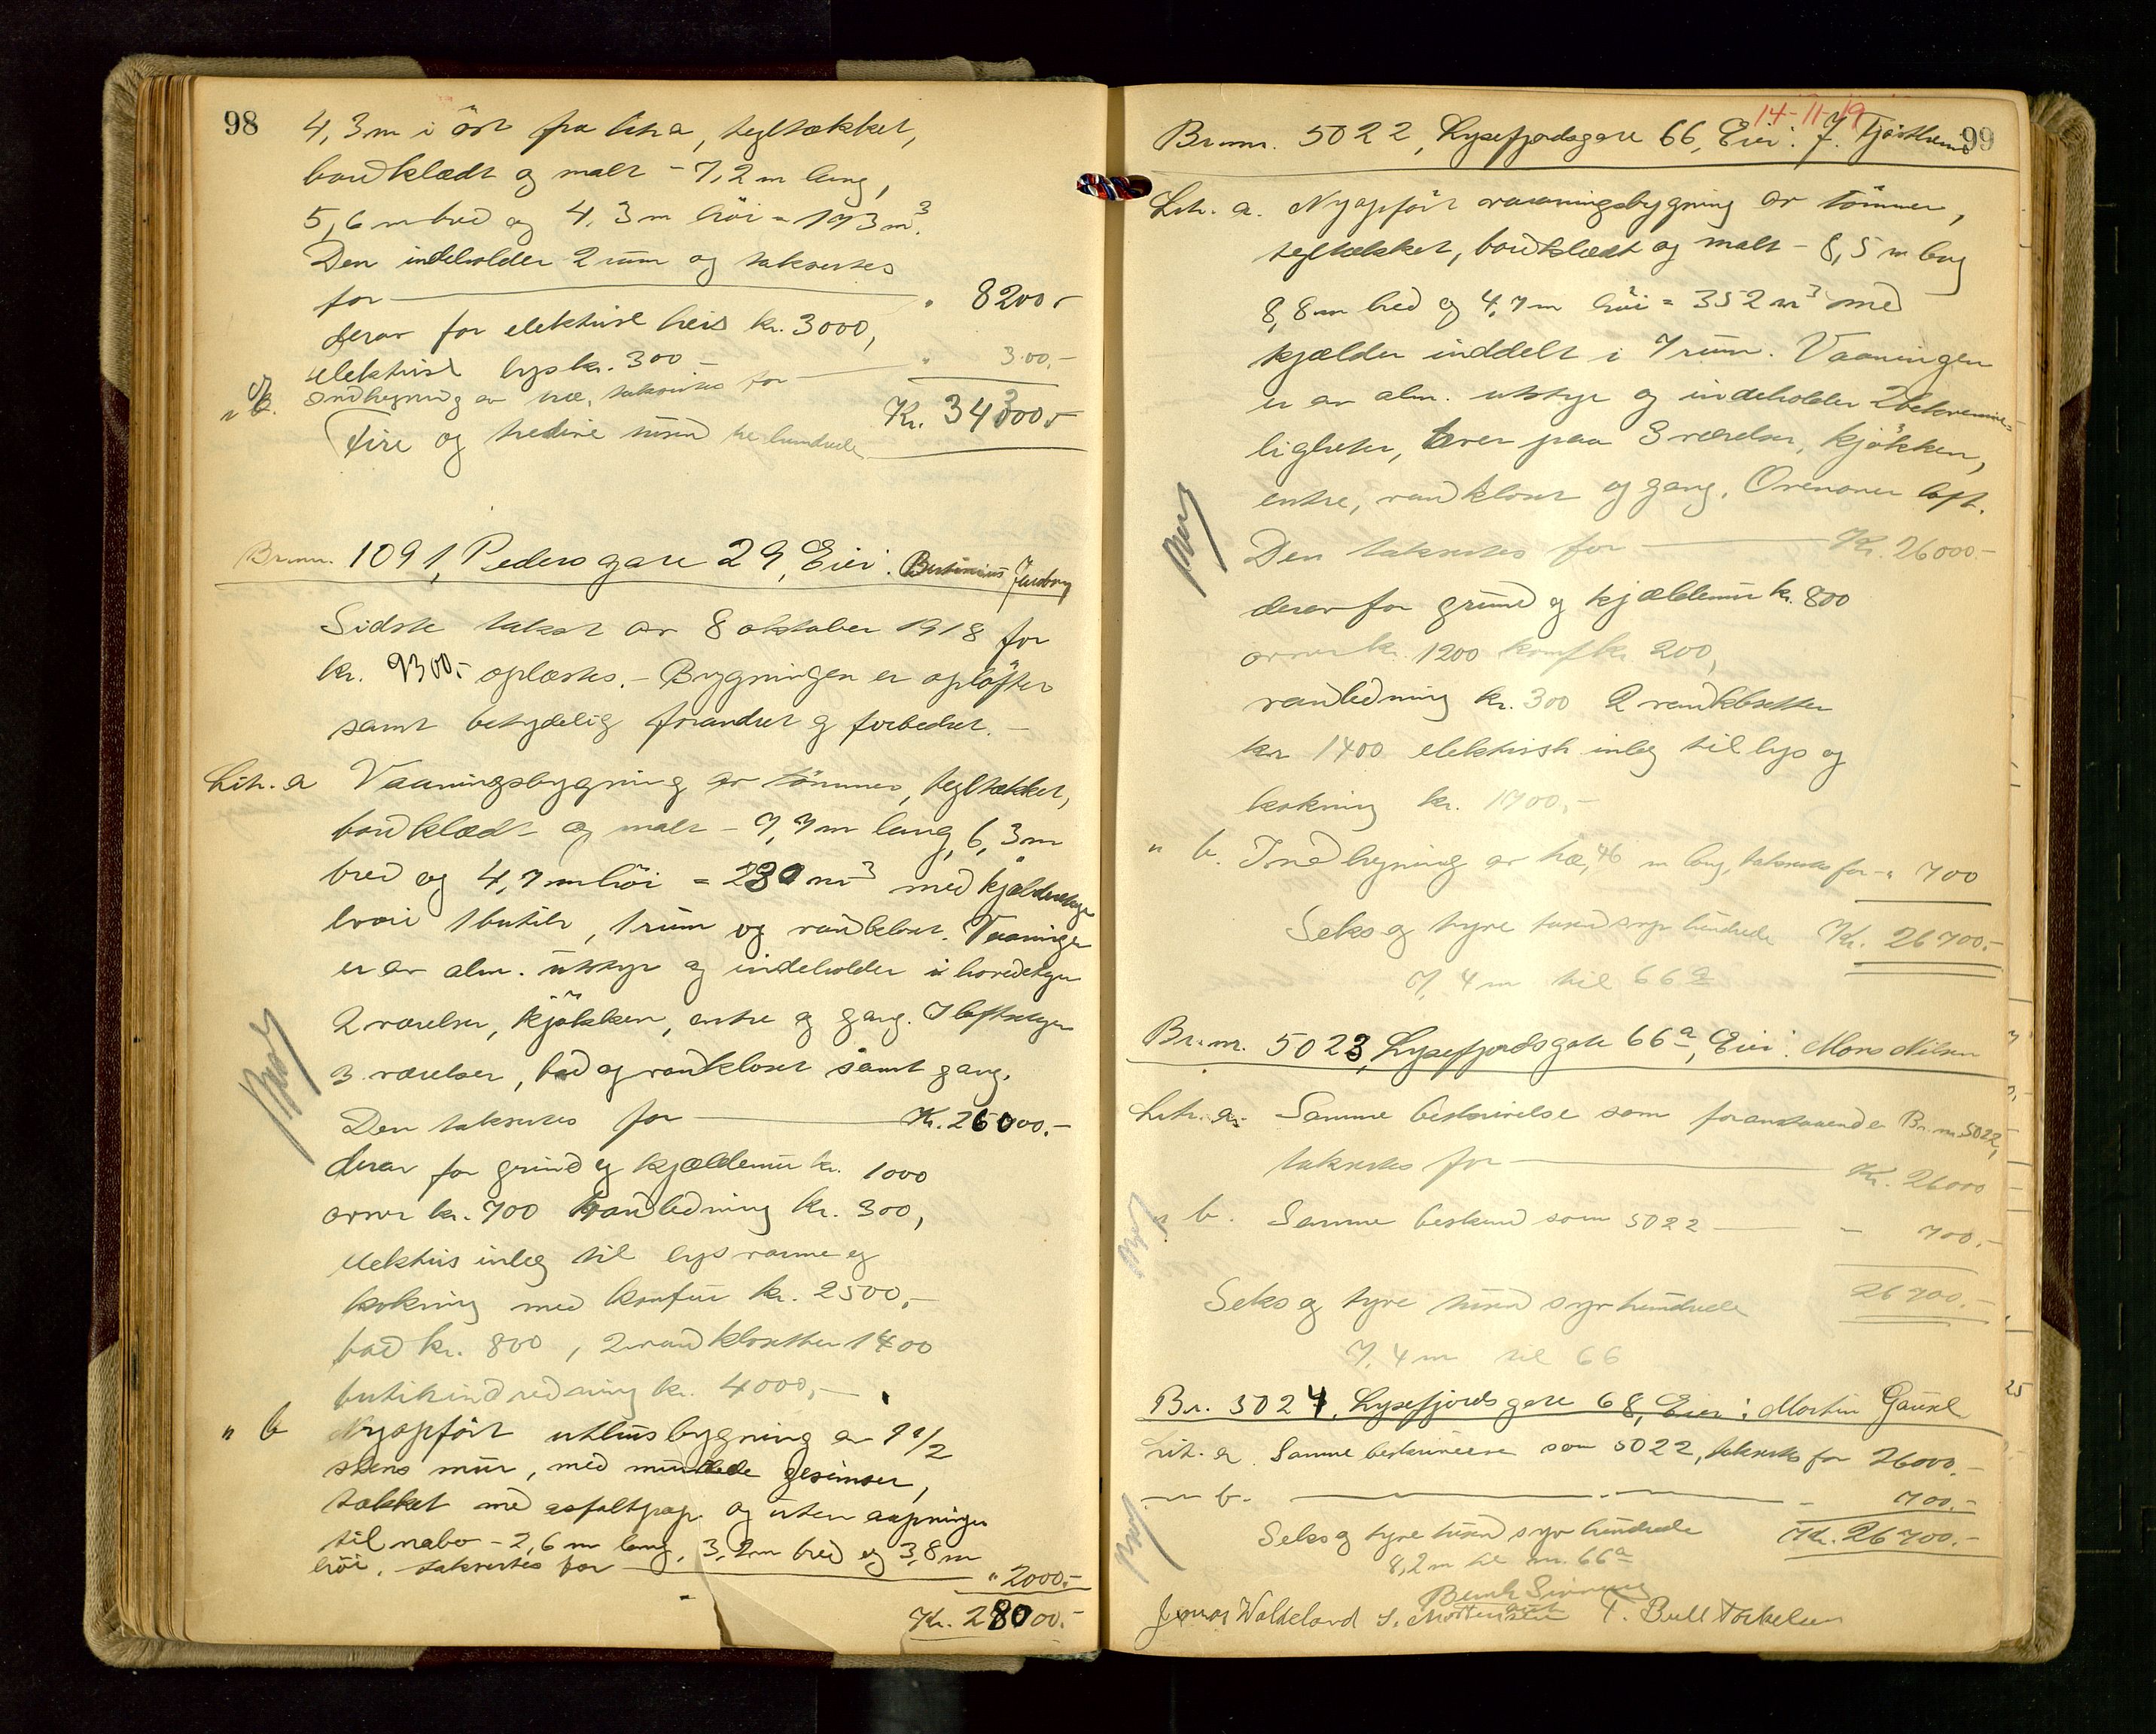 98
4,3 m i öst fra litra a, tegltækket,
bordklædt og malt - 7,2 m lang,
5,6 m bred og 4,3 m höi = 173 m³.
Den indeholder 2 rum og taksertes
for — " 8200.-
derav for elektrisk heis kr. 3000,
elektrisk lys kr. 300 -
" Indhegning av træ, taksertes for — " 300.-
Kr. 34300.-
Fire og tredive tusend trehundrede
Br.nr. 1091, Pedersgate 29, Eier: Bertinius
Sidste takst av 8 oktober 1918 for
kr. 9300.- oplæstes. - Bygningen er opløftet
samt betydelig forandret og forbedret. -
Litr. a Vaaningsbygning av tömmer, tegltækket,
bordklædt og malt - 7,7 m lang, 6,3 m
bred og 4,7 m höi = 230 m³ med kjælderetage
hvori 1 butik, 1 rum og vandkloset. Vaaningen
er av alm. utstyr og indeholder i hovedetagen
2 værelser, kjökken, entre og gang. I loftsetagen
3 værelser, bad og vandkloset samt gang.
Den taksertes for — Kr. 26000.-
derav for grund og kjældermur kr. 1000
ovner kr. 700 vandledning kr. 300,
elektrisk inlæg til lys varme og
kokning med komfur kr. 2500,-
bad kr. 800, 2 vandklosetter 1400
butikindredning kr. 4000,-
" b Nyopfört uthusbygning av 1 1/2
stens mur, med murede gesimser,
tækket med asfaltpap og uten aapninger
til nabo - 2,6 m lang, 3,2 m bred og 3,8 m
höi, taksertes for — " 2000.-
Kr. 28000.-
14-11-19
99
Br.nr. 5022, Lysefjordsgate 66, Eier: J. Tjøstheim
Litr. a. Nyopfört vaaningsbygning av tömmer,
tegltækket, bordklædt og malt - 8,5 m lang
8,8 m bred og 4,7 m höi = 352 m³ med
kjælder inddelt i 7 rum. Vaaningen
er av alm. utstyr og indeholder 2 bekvemme-
ligheter, hver paa 3 værelser, kjökken,
entre, vandkloset og gang. Ovenover loft.
Den taksertes for — Kr. 26000.-
derav for grund og kjældermur kr. 800
ovner kr. 1200 komf kr. 200,
vandledning kr. 300 2 vandklosetter
kr 1400 elektrisk inlæg til lys og
kokning kr. 1700,-
" b. Indhegning av træ, 46 m lang, taksertes for - " 700
Seks og tyve tusend syv hundrede Kr. 26700.-
7,4 m til 66a
Br.nr. 5023, Lysefjordsgate 66a, Eier: Mons Nilsen
Litr. a. Samme beskrivelse som foranstaaende Br.nr. 5022,
taksertes for — Kr. 26000
" b. Samme beskaend som 5022 — - 700.-
26700.-
Seks og tyve tusend syv hundrede
7,4 m til 66
Br. 5024, Lysefjords gate 68, Eier: Martin Gausel
Litr. a. Samme beskrivelse som 5022, taksertes for 26000.-
— " b. — " — - 700.-
Seks og tyve tusend syv hundrede Kr. 26700.-
8,2 m til nr. 66a
Jonas Waldeland S. Mortensen T. Bull Torkelsen